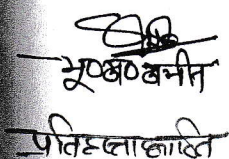 भू०अ०अमीन
प्रतिहस्ताक्षरित